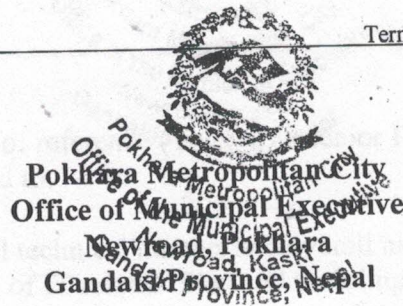 Pokhara Metropolitan City
Office of Municipal Executive
Newroad, Pokhara
Gandaki Province, Nepal
Pokhara Metropolitan City
Office of the Municipal Executive
Newroad, Kaski
Gandaki Province, Nepal